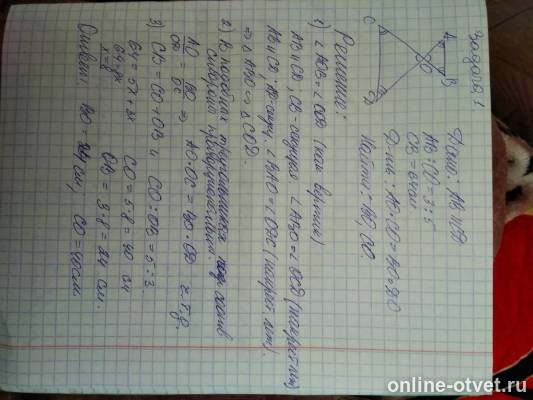 Задача 1
C A
O
D B
Дано: AB ∥ CD
AB : CD = 3 : 5
CB = 64 см
Д-ть: AO · CO = BO · DO
Найти - BO, CO.
Решение:
1) ∠AOB = ∠COD (как вертик)
AB ∥ CD, CB - секущая ∠ABO = ∠OCD (накрест леж)
AB ∥ CD, AD - секущ. ∠BAO = ∠ODC (накрест. леж).
⇒ △ABO ∾ △COD.
2) В подобных треугольниках
стороны пропорциональны.
AO/OD = BO/OC ⇒ AO · OC = BO · OD ч.т.д.
3) CB = CO + OB и CO : OB = 5 : 3
64 = 5x + 3x CO = 5 · 8 = 40 см
64 = 8x OB = 3 · 8 = 24 см.
x = 8
Ответ: BO = 24 см, CO = 40 см.
online-otvet.ru